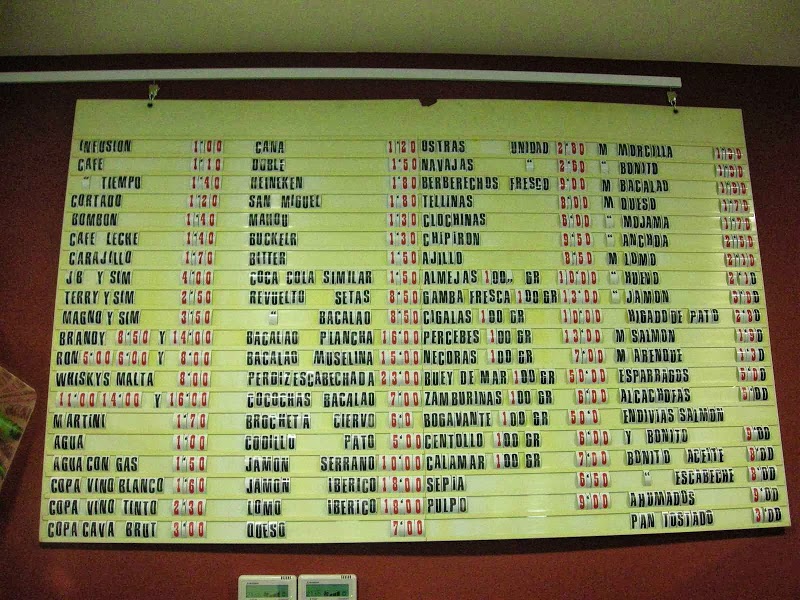 INFUSION 1'00
CAFE 1'10
" TIEMPO 1'40
CORTADO 1'20
BOMBON 1'40
CAFE LECHE 1'40
CARAJILLO 1'70
JB Y SIM 4'00
TERRY Y SIM 2'50
MAGNO Y SIM 3'50
BRANDY 8'50 Y 14'00
RON 5'00 6'00 Y 8'00
WHISKYS MALTA 8'00
11'00 14'00 Y 16'00
MARTINI 1'70
AGUA 1'00
AGUA CON GAS 1'50
COPA VINO BLANCO 1'60
COPA VINO TINTO 2'30
COPA CAVA BRUT 3'00
CAÑA 1'20
DOBLE 1'50
HEINEKEN 1'80
SAN MIGUEL 1'80
MAHOU 1'30
BUCKELR 1'30
BITTER 1'50
COCA COLA SIMILAR 1'50
REVUELTO SETAS 8'50
" BACALAO 8'50
BACALAO PLANCHA 16'00
BACALAO MUSELINA 15'00
PERDIZ ESCABECHADA 23'00
COCOCHAS BACALAO 7'00
BROCHETA CIERVO 6'0
CODILLO PATO 5'00
JAMON SERRANO 10'00
JAMON IBERICO 18'00
LOMO IBERICO 18'00
QUESO 7'00
OSTRAS UNIDAD 2'80
NAVAJAS " 2'60
BERBERECHOS FRESCO 9'00
TELLINAS 8'00
CLOCHINAS 8'00
CHIPIRON 9'50
AJILLO 8'50
ALMEJAS 100,, GR 10'00
GAMBA FRESCA 100 GR 13'00
CIGALAS 100 GR 10'00
PERCEBES 100 GR 13'00
NECORAS 100 GR 7'00
BUEY DE MAR 100 GR 50'00
ZAMBURIÑAS 100 GR 6'00
BOGAVANTE 100 GR 50'0
CENTOLLO 100 GR 6'00
CALAMAR 100 GR 7'00
SEPIA 6'50
PULPO 9'00
M MORCILLA
" BONITO
M BACALAO
M QUESO
" MOJAMA
" ANCHOA
M LOMO
" HUEVO
" JAMON
HIGADO DE PATO
M SALMON
M ARENQUE
ESPARRAGOS
ALCACHOFAS
ENDIVIAS SALMON
Y BONITO 9'00
BONITO ACEITE 8'00
" ESCABECHE 8'00
AHUMADOS 9'00
PAN TOSTADO 3'00